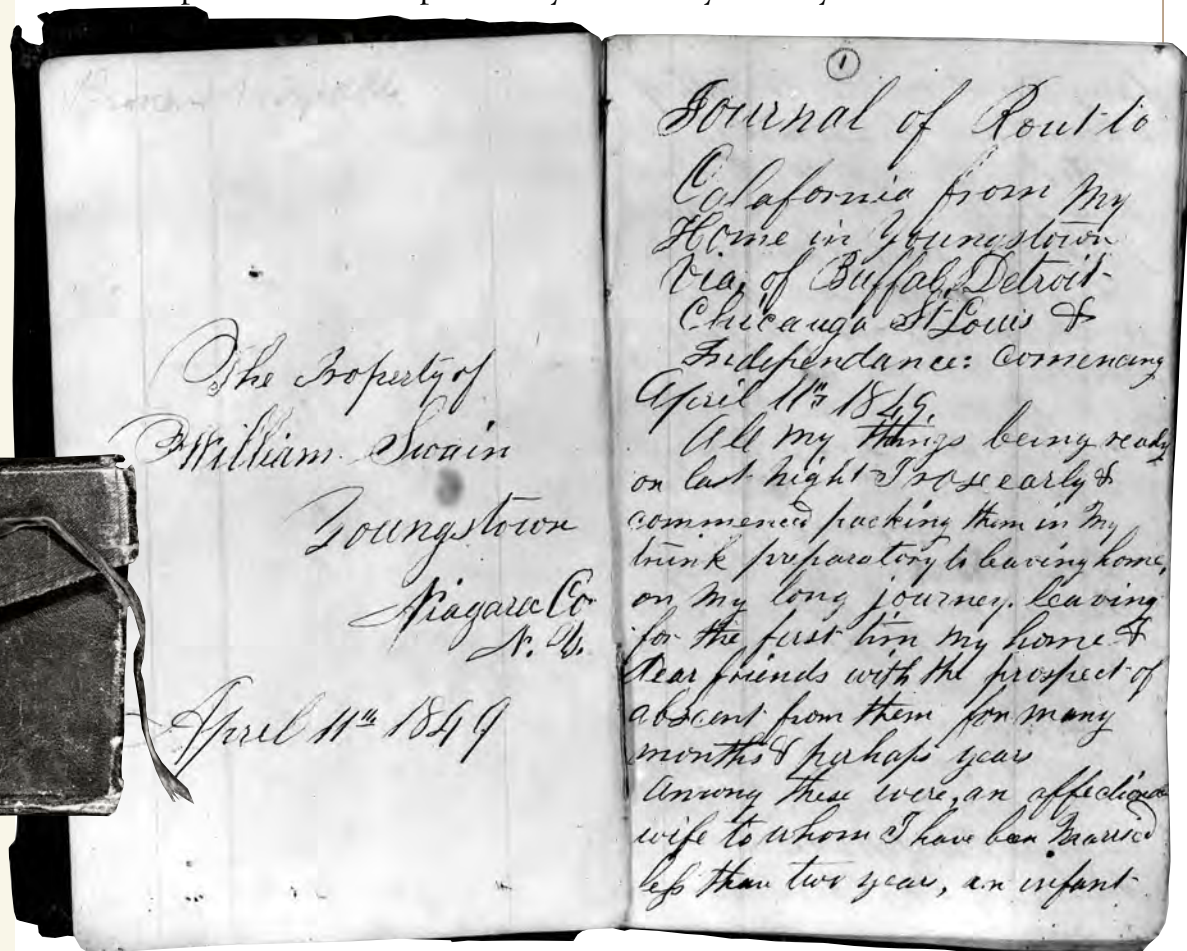 The Property of
William Swain
Youngstown
Niagara Co
N. Y.
April 11th 1849
1
Journal of Rout to
Calafornia from My
Home in Youngstown
Via, of Buffalo, Detroit
Chicauga St Louis &
Independance: Commencing
April 11th 1849.
All My things being ready
on last night I rose early &
commenced packing them in My
trunk preparatory to leaving home,
on My long journey. leaving
for the first tim my home &
dear friends with the prospect of
abscent from them for many
months & perhaps years
among these were, an affectionate
wife to whom I have been Married
less than two years, an infant